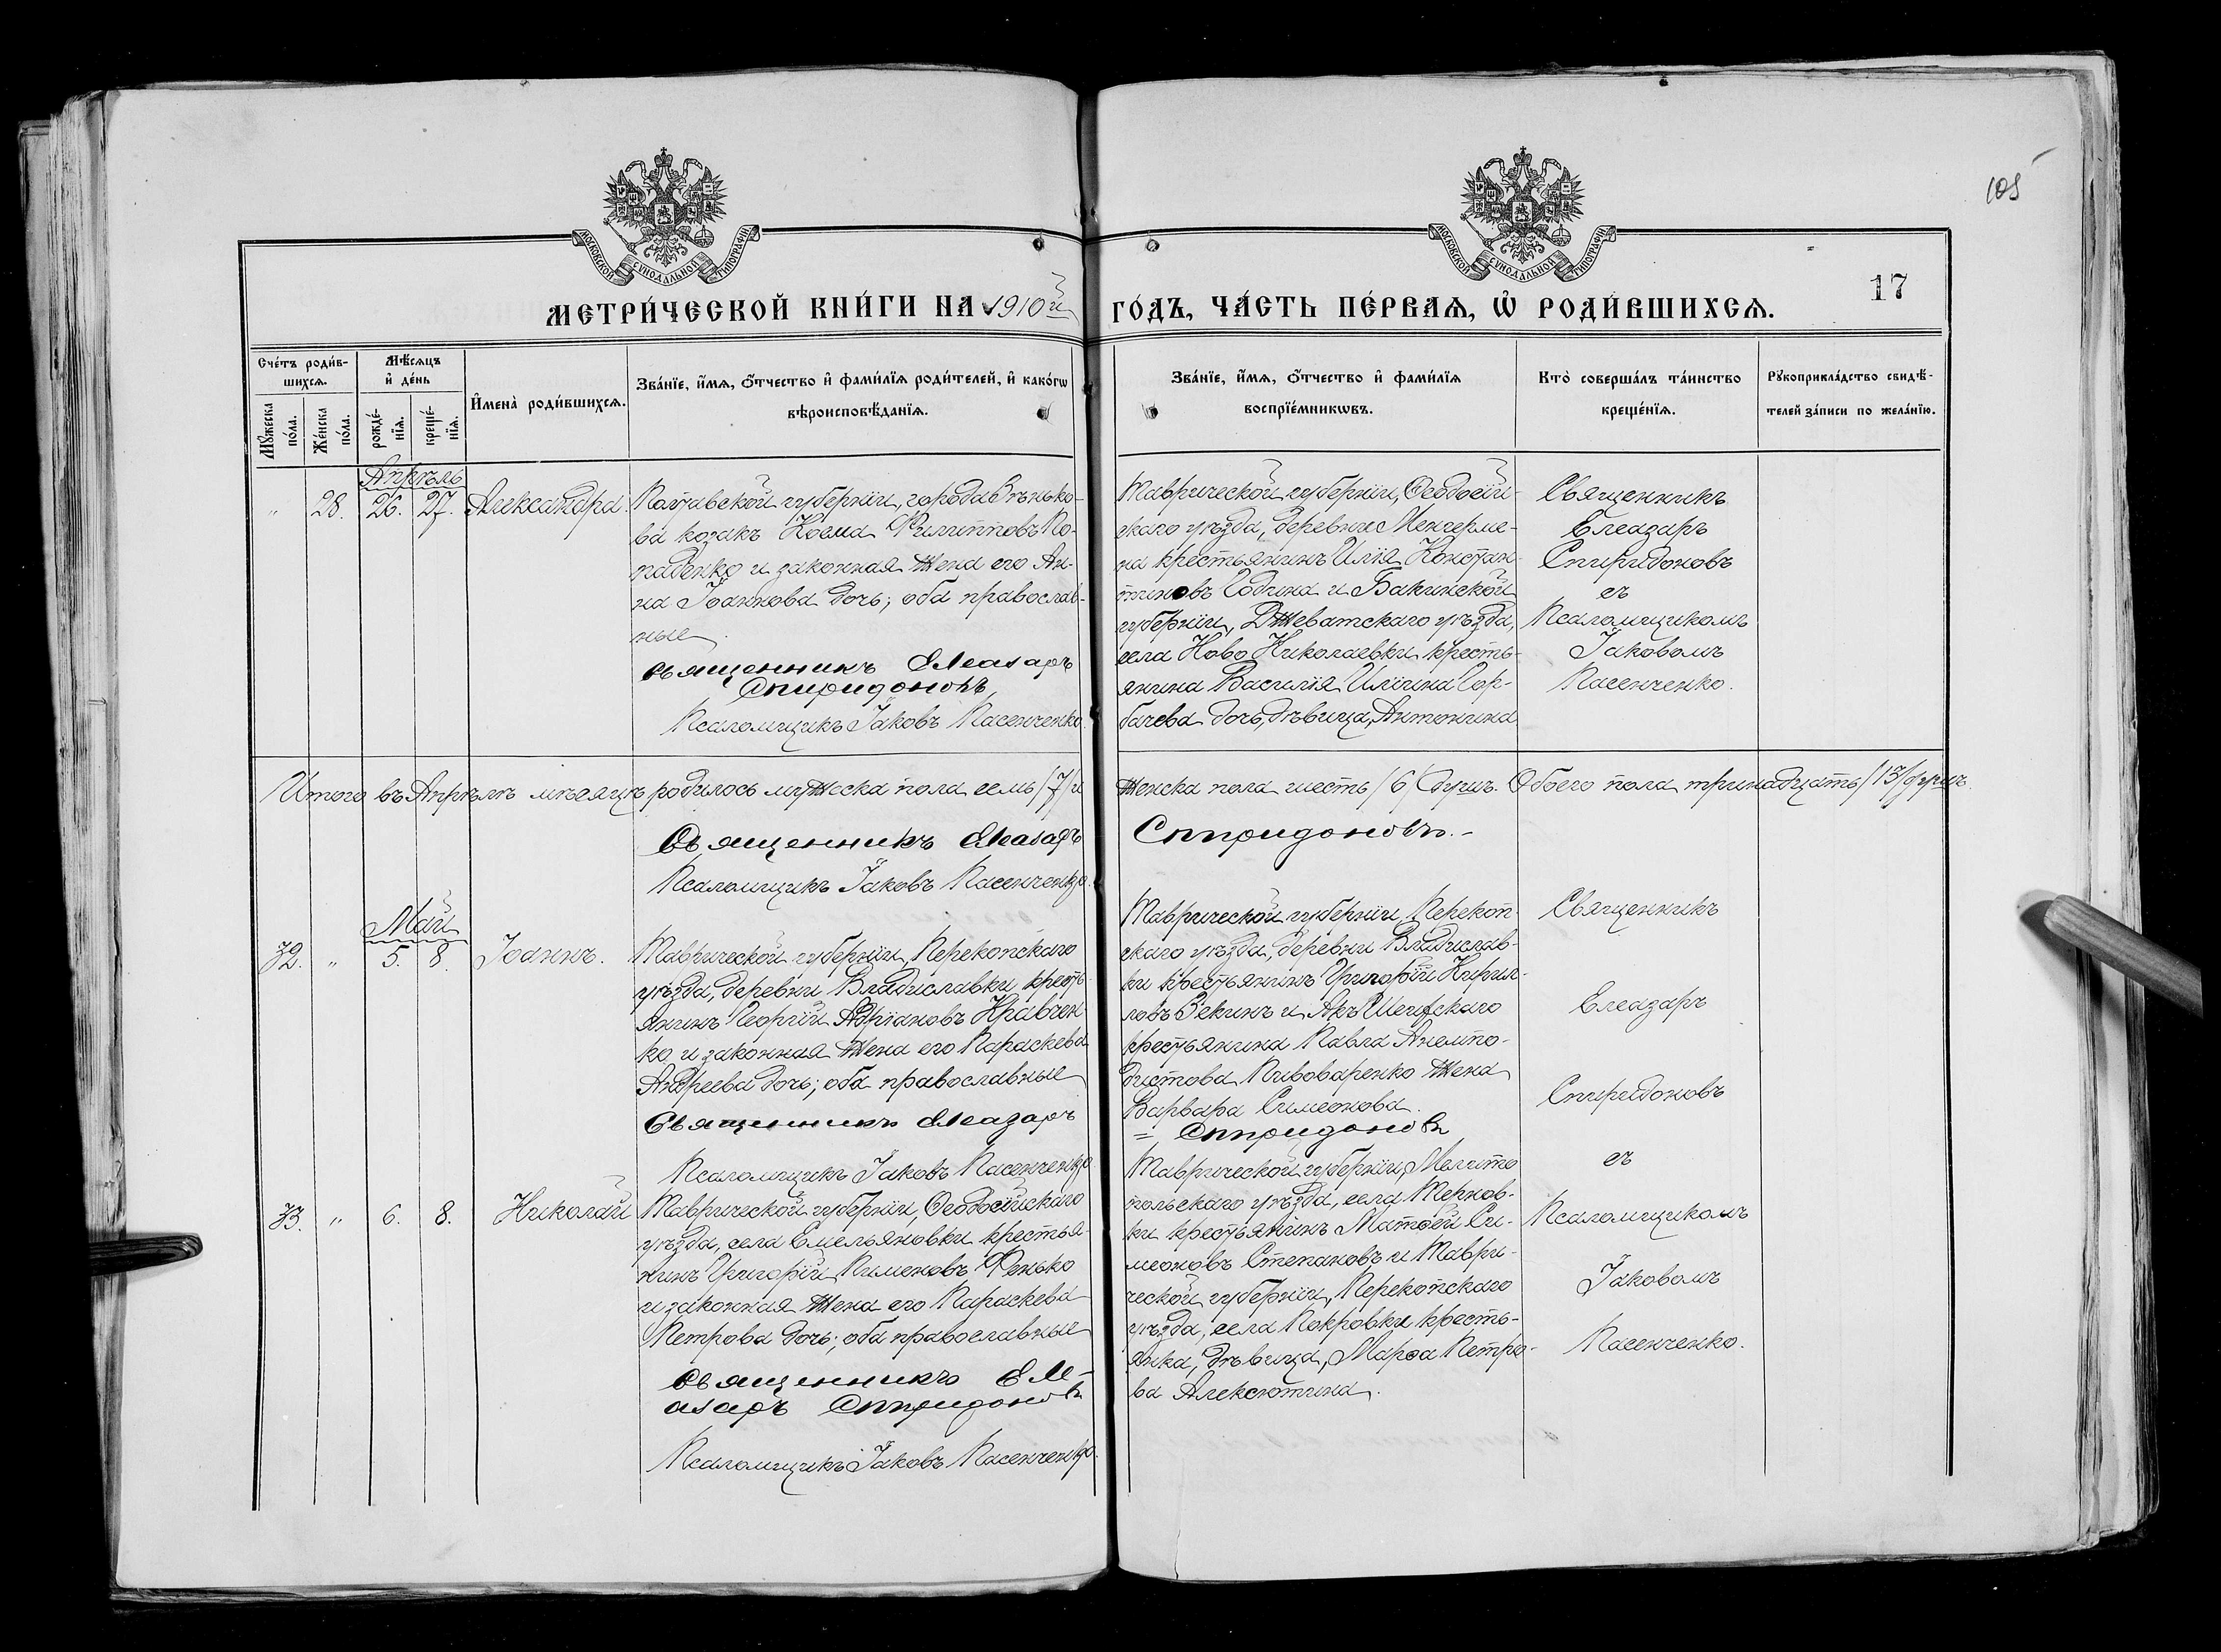 105
МОСКОВСКОЙ СѴНОДАЛЬНОЙ ТИПОГРАФІИ
МОСКОВСКОЙ СѴНОДАЛЬНОЙ ТИПОГРАФІИ
17
МЕТРИ́ЧЕСКОЙ КНИ́ГИ НА 1910й ГО́ДЪ, ЧА́СТЬ ПЕ́РВАѦ, Ѡ҆ РОДИ́ВШИХСѦ.
Сче́тъ роди́в-
шихсѧ.
Мѣ́сѧцъ
и҆ де́нь
Мꙋ́жеска
по́ла.
Же́нска
по́ла.
рожде́-
нїѧ.
креще́-
нїѧ.
И҆мена̀ роди́вшихсѧ.
Зва́нїе, и҆́мѧ, ѻ҆́тчество и҆ фами́лїѧ роди́телей, и҆ како́гѡ
вѣроисповѣ́данїѧ.
Зва́нїе, и҆́мѧ, ѻ҆́тчество и҆ фами́лїѧ
воспрїе́мникѡвъ.
Кто̀ соверша́лъ та́инство
креще́нїѧ.
Рꙋкоприкла́дство свидѣ́-
телей за́писи по жела́нїю.
Апрѣль
" 28. 26. 27. Александра.
Полтавской губерніи, города Зѣнько-
ва козакъ Косма Филипповъ По-
паденко и законная жена его Ан-
на Іоаннова дочь; оба православ-
ные
Священникъ Елеазаръ
Спиридоновъ,
Псаломщикъ Іаковъ Пасенченко.
Таврической губерніи, Ѳеодосій-
скаго уѣзда, деревни Менгерме-
на крестьянинъ Илія Констан-
тиновъ Година и Бакинской
губерніи, Джеватскаго уѣзда,
села Ново Николаевки кресть-
янина Василія Иліина Гор-
бачева дочь, дѣвица, Антонина
Священникъ
Елеазаръ
Спиридоновъ
съ
Псаломщикомъ
Іаковомъ
Пасенченко.
Итого въ Апрѣлѣ мѣсяцѣ родилось мужеска пола семь /7/ и женска пола шесть /6/ душъ. Обоего пола тринадцать /13/ душъ.
Священникъ Елеазаръ Спиридоновъ.-
Псаломщикъ Іаковъ Пасенченко.
Май
32. " 5. 8. Іоаннъ.
Таврической губерніи, Перекопскаго
уѣзда, деревни Владиславки кресть-
янинъ Георгій Адріановъ Кравчен-
ко и законная жена его Параскева
Андреева дочь; оба православные
Священникъ Елеазаръ
Псаломщикъ Іаковъ Пасенченко.
Таврической губерніи, Перекоп-
скаго уѣзда, деревни Владислав-
ки крестьянинъ Григорій Кирил-
ловъ Зекинъ и
крестьянина Павла Анемпо-
дистова Пивоваренко жена
Варвара Симеонова.
= Спиридоновъ
33. " 6. 8. Николай
Таврической губерніи, Ѳеодосійскаго
уѣзда, села Емельяновки крестья-
нинъ Григорій Пименовъ Фенько
и законная жена его Параскева
Петрова дочь; оба православные
Священникъ Еле-
азаръ Спиридоновъ
Псаломщикъ Іаковъ Пасенченко.
Таврической губерніи, Мелито
польскаго уѣзда, села Тернов-
ки крестьянинъ Матѳей Си-
меоновъ Степановъ и Таври-
ческой губерніи, Перекопскаго
уѣзда, села Покровки кресть-
янка, дѣвица, Марѳа Петро-
ва Алексютина.
Священникъ
Елеазаръ
Спиридоновъ
съ
Псаломщикомъ
Іаковомъ
Пасенченко.